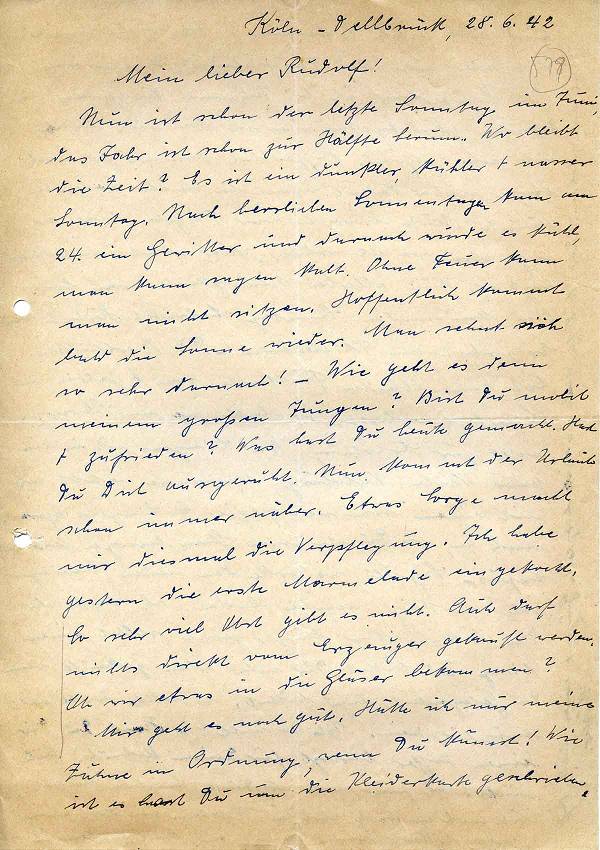 Köln-Dellbrück, 28.6.42
579
Mein lieber Rudolf!
Nun ist schon der letzte Sonntag im Juni,
das Jahr ist schon zur Hälfte herum. Wo bleibt
die Zeit? Es ist ein dunkler, kühler + nasser
Sonntag. Nach herrlichen Sonnentagen kam am
24. ein Gewitter und darnach wurde es kühl,
man kann sagen kalt. Ohne Feuer kann
man nicht sitzen. Hoffentlich kommt
bald die Sonne wieder. Man sehnt sich
so sehr darnach! – Wie geht es denn
meinem großen Jungen? Bist Du mobil
+ zufrieden? Was hast Du heute gemacht. Hast
Du Dich ausgeruht. Nun kommt der Urlaub
schon immer näher. Etwas Sorge macht
mir diesmal die Verpflegung. Ich habe
gestern die erste Marmelade eingekocht.
So sehr viel Obst gibt es nicht. Auch darf
nichts direkt vom Erzeuger gekauft werden.
Ob wir etwas in die Gläser bekommen?
Mir geht es noch gut. Hätte ich nur meine
Zähne in Ordnung, wenn Du kommst! Wie
ist es hast Du um die Kleiderkarte geschrieben,